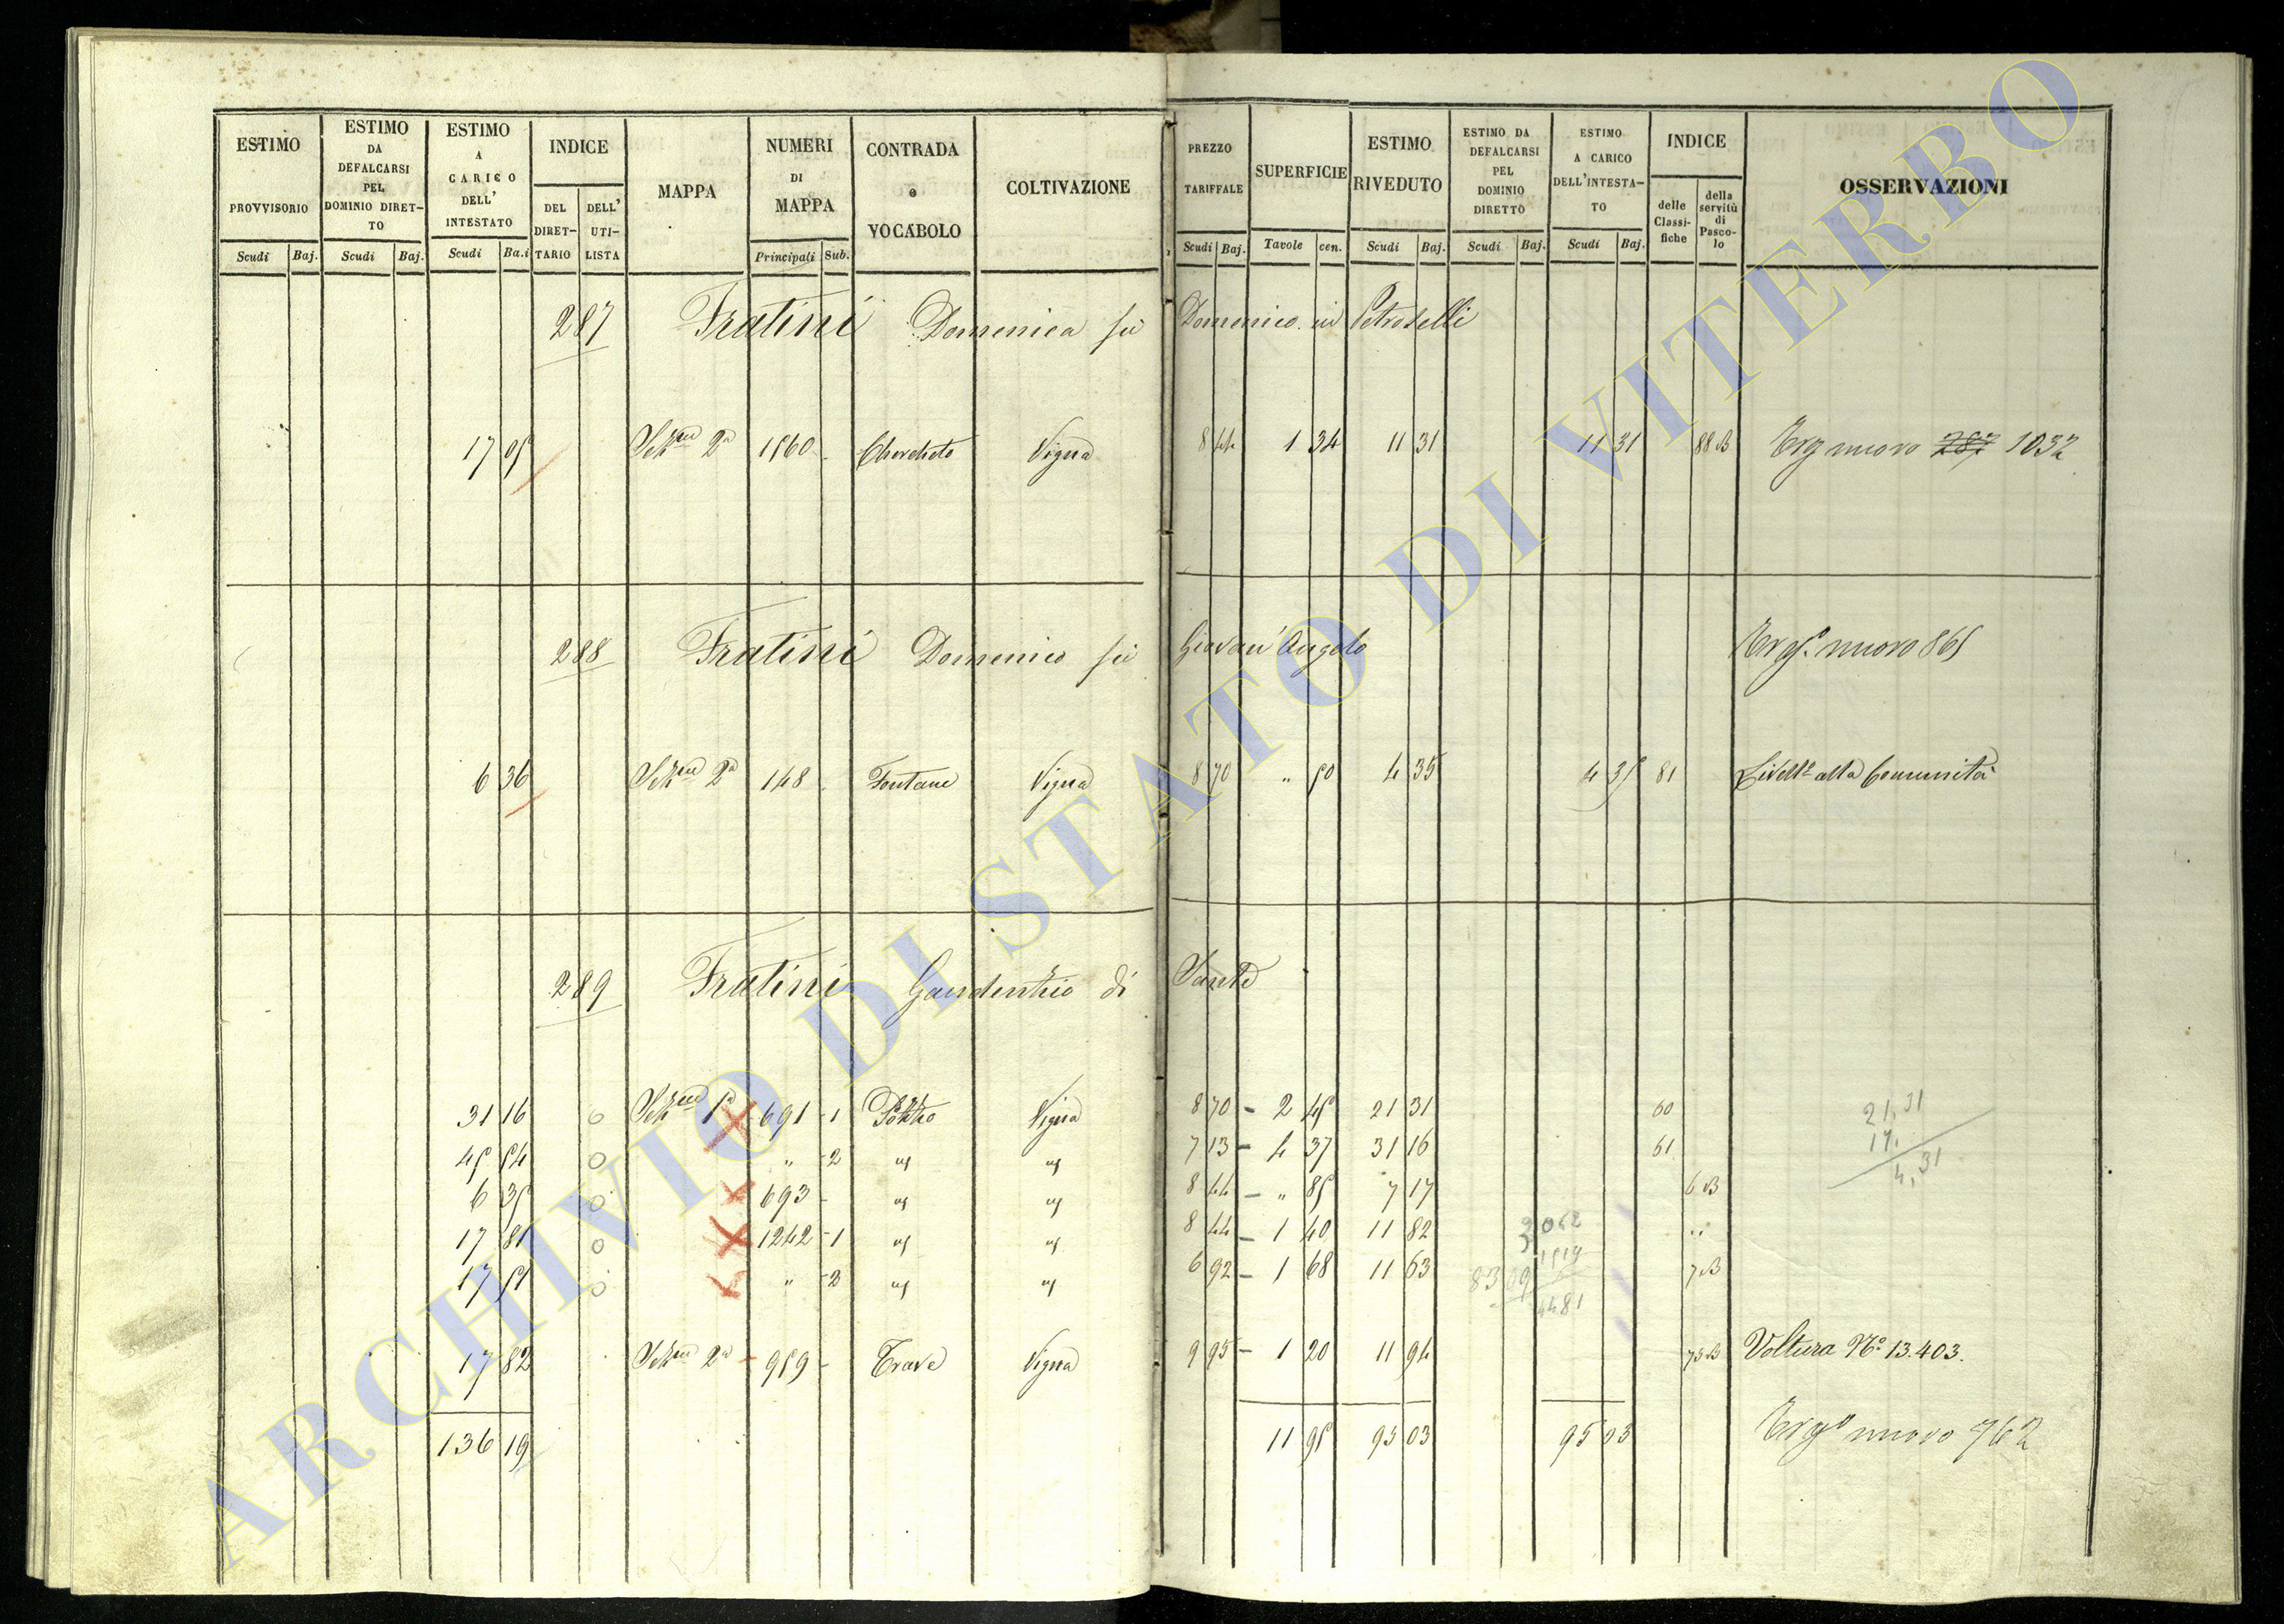 ESTIMO PROVVISORIO
ESTIMO DA DEFALCARSI PEL DOMINIO DIRET-TO
ESTIMO A CARICO DELL' INTESTATO
INDICE
DEL DIRET-TARIO
DELL' UTI-LISTA
MAPPA
NUMERI DI MAPPA
CONTRADA e VOCABOLO
COLTIVAZIONE
PREZZO TARIFFALE
SUPERFICIE
ESTIMO RIVEDUTO
ESTIMO DA DEFALCARSI PEL DOMINIO DIRETTO
ESTIMO A CARICO DELL'INTESTA-TO
INDICE
delle Classi-fiche
della servitù di Pasco-lo
OSSERVAZIONI
Scudi Baj. Scudi Baj. Scudi Ba.i Principali Sub. Scudi Baj. Tavole cen. Scudi Baj. Scudi Baj. Scudi Baj.
287 Fratini Domenica fu Domenico in Petroselli
17 05 Sezne 2a 1560 Vigna 8 44 1 34 11 31 11 31 88 B nuovo 287 1032
288 Fratini Domenico fu Giovan' Angelo nuovo 865
6 36 Sezne 2a 148 Fontane Vigna 8 70 " 50 4 35 4 35 81 Livello alla Comunità
289 Fratini Gaudenzio di Sante
31 16 o Sezne 1a 691 - 1 Pozzo Vigna 8 70 - 2 45 21 31 60
45 54 o " - 2 " " 7 13 - 4 37 31 16 61
6 35 o 693 - " " 8 44 - " 85 7 17 6 B
17 81 o 1242 - 1 " " 8 44 - 1 40 11 82 "
17 51 o " - 2 " " 6 92 - 1 68 11 63 7 B
17 82 Sezne 2a - 959 - Trave Vigna 9 95 - 1 20 11 94 75 B Voltura No 13.403.
136 19 11 95 95 03 95 03 nuovo 762
21,31
17.
4,31
83 09
4481
ARCHIVIO DI STATO DI VITERBO